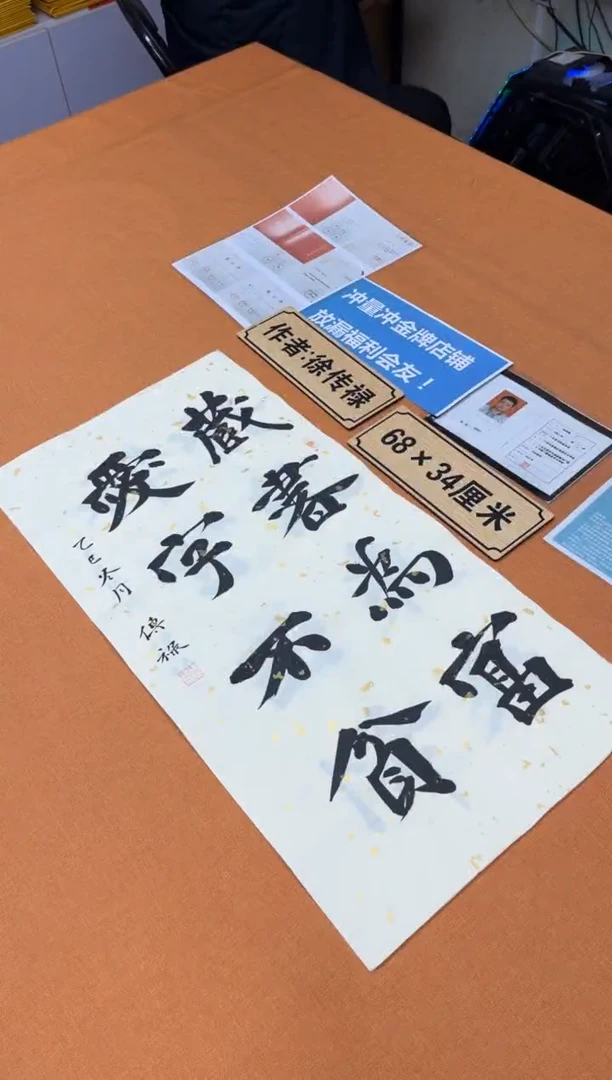 冲量冲金牌店铺
放漏福利会友！
作者:徐传禄
68×34厘米
藏書為富
愛字不貧
乙巳冬月
傳祿